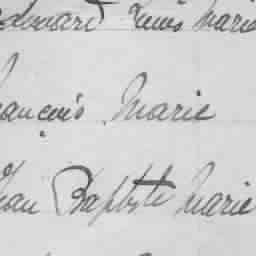 Edouard Louis Marie
François Marie
Jean Baptiste Marie